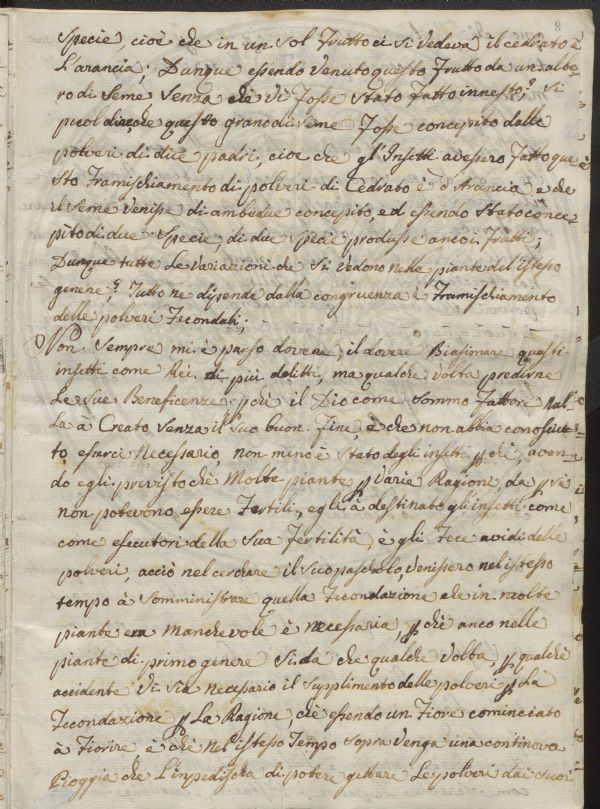 8
Specie, cioè che in un sol frutto ci si vedeva il cedrato e
L'arancia; Dunque essendo venuto questo frutto da un albe-
ro di seme senza che vi fosse stato fatto innesto. Si
puol dire che questo grano di seme fosse concepito dalle
polveri di due padri, cioè che gl'Insetti avessero fatto que
sto framischiamento di polveri di Cedrato è d'Arancia e che
il seme venisse di ambedue concepito, ed essendo stato conce-
pito di due specie, di due specie produsse anco i frutti;
Dunque tutte Le variazioni che si vedono nelle piante del'istesso
genere, Tutto ne dipende dalla congruenza è framischiamento
delle polveri fecondali;
Non sempre mi è parso dovere, il dovere Biasimare questi
insetti come Rei di più delitti, ma qualche volta predirne
Le sue Beneficenze; pche il Dio come sommo fattore nul-
La à Creato senza il suo buon fine, è che non abbia conosciu-
to esserci necessario, non meno è stato degli insetti pche, aven-
do egli previsto che Molte piante p varie Ragione, da p se
non potevono essere fertili, egli à destinato gli insetti come
come esecutori della sua fertilità, è gli fece avidi delle
polveri, acciò nel cerchare il suo pascholo, venissero nel istesso
tempo à somministrare quella fecondazione che in molte
piante era manchevole è necessaria, pche anco nelle
piante di primo genere si da che qualche volta, p qualche
accidente vi sia necessario il supplimento delle polveri p La
fecondazione p La Ragione, che essendo un fiore cominciato
à fiorire è che nel'istesso Tempo sopra venga una continova
Pioggia che L'inpedischa di potere gettare Le polveri dai suoi